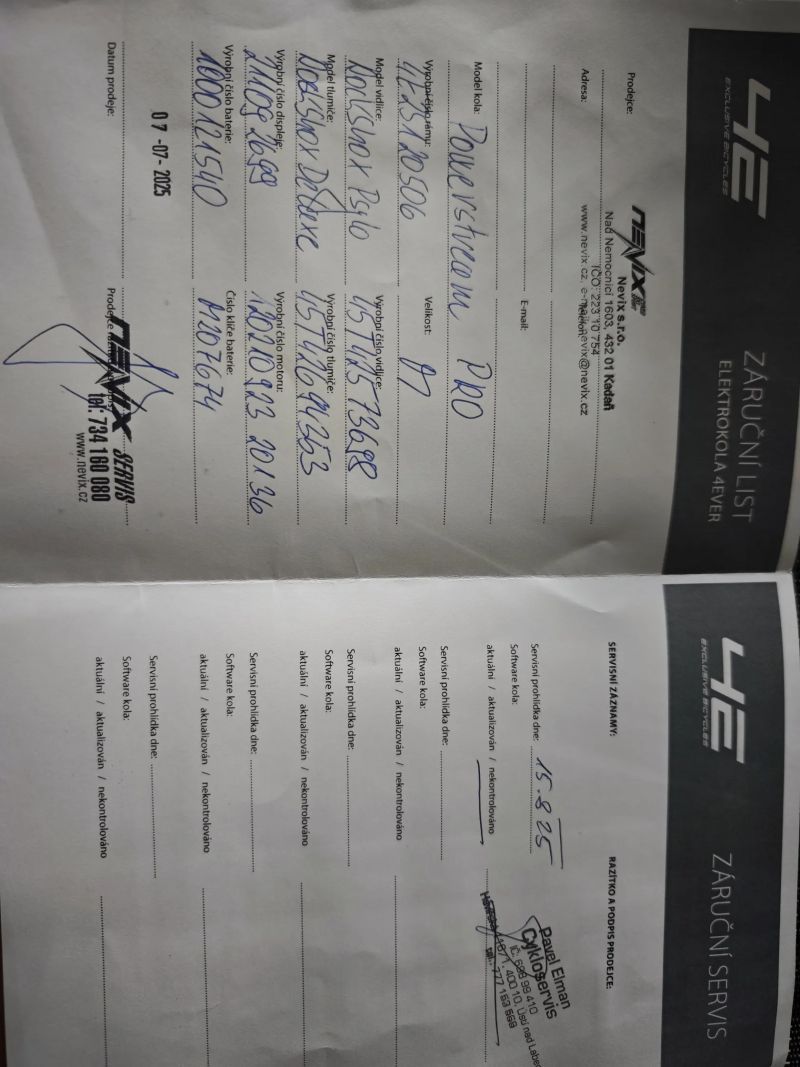 4E
EXCLUSIVE BICYCLES
ZÁRUČNÍ LIST
ELEKTROKOLA 4EVER
Prodejce:
NEVIX
Nevix s.r.o.
Nad Nemocnicí 1603, 432 01 Kadaň
IČO: 223 10 754
Adresa:
www.nevix.cz, e-mail: nevix@nevix.cz
E-mail:
Model kola: Powerstream PRO
Výrobní číslo rámu: Velikost:
Model vidlice: Rockshox Psylo Výrobní číslo vidlice: 45T42573698
Model tlumiče: Rockshox Deluxe Výrobní číslo tlumiče: 45T42694353
Výrobní číslo displeje: Výrobní číslo motoru: 120210923 20136
Výrobní číslo baterie: 1000121540 Číslo klíče baterie: M207674
07-07-2025
Datum prodeje: Prodejce
NEVIX SERVIS
tel: 734 160 080
www.nevix.cz
4E
EXCLUSIVE BICYCLES
ZÁRUČNÍ SERVIS
SERVISNÍ ZÁZNAMY: RAZÍTKO A PODPIS PRODEJCE:
Servisní prohlídka dne: 15.8 25
Software kola:
aktuální / aktualizován / nekontrolováno
Pavel Elman
Cykloservis
IČ: 696 99 410
400 10, Ústí nad Labem
tel.: 777 163 569
Servisní prohlídka dne:
Software kola:
aktuální / aktualizován / nekontrolováno
Servisní prohlídka dne:
Software kola:
aktuální / aktualizován / nekontrolováno
Servisní prohlídka dne:
Software kola:
aktuální / aktualizován / nekontrolováno
Servisní prohlídka dne:
Software kola:
aktuální / aktualizován / nekontrolováno